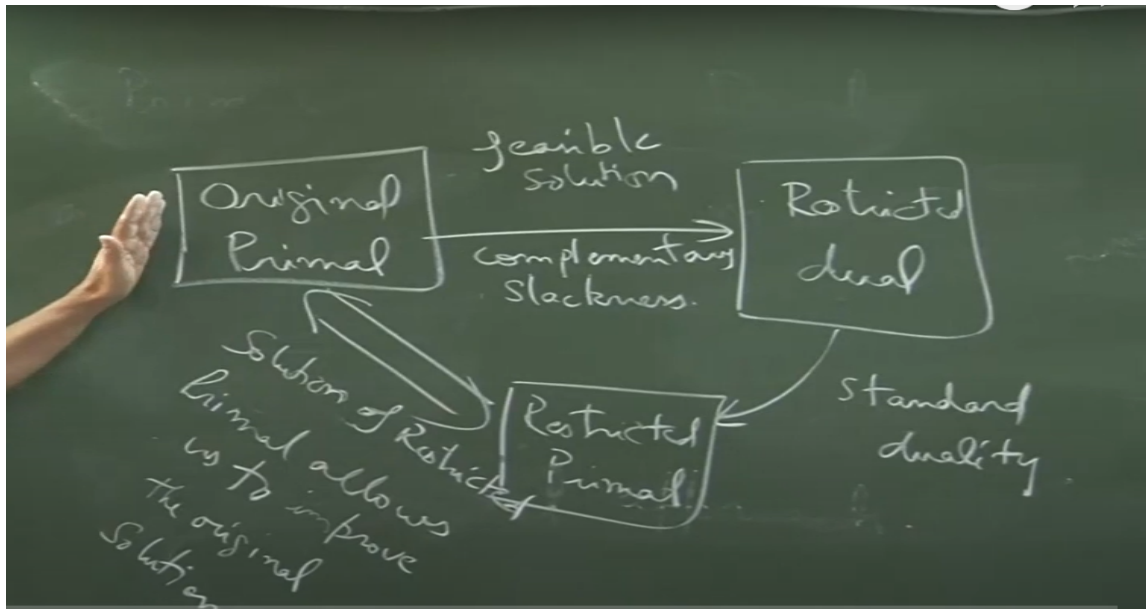 Original
Primal
feasible
solution
complementary
slackness.
Restricted
dual
standard
duality
Restricted
Primal
Solution of Restricted
Primal allows
us to improve
the original
solution